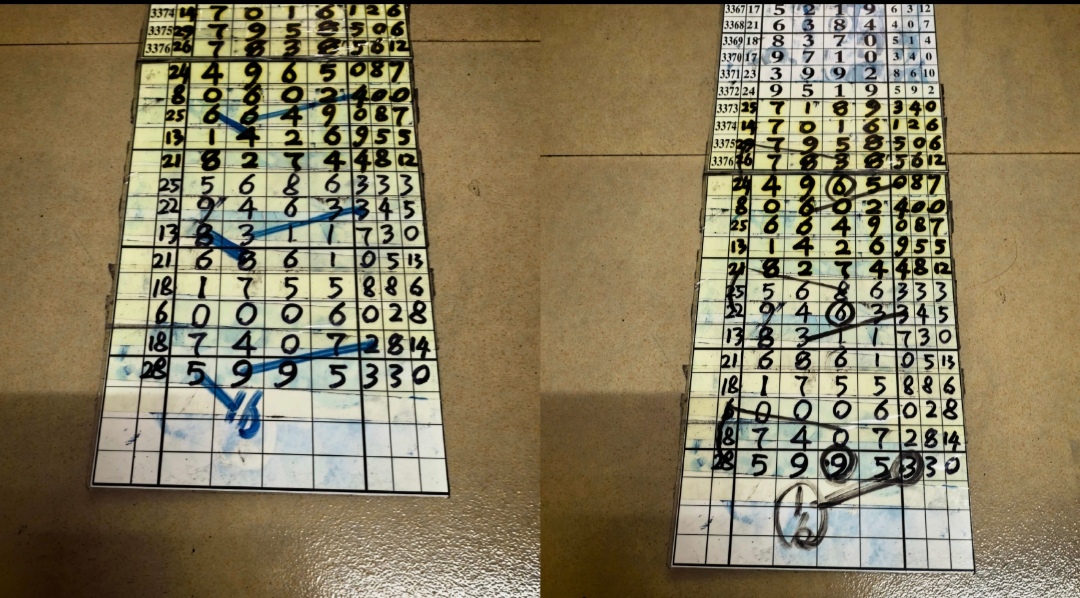 3374 14 7 0 1 6 1 2 6
3375 29 7 9 5 8 5 0 6
3376 26 7 8 3 8 5 6 12
24 4 9 6 5 0 8 7
8 0 6 0 2 4 0 0
25 6 6 4 9 0 8 7
13 1 4 2 6 9 5 5
21 8 2 7 4 4 8 12
25 5 6 8 6 3 3 3
22 9 4 6 3 3 4 5
13 8 3 1 1 7 3 0
21 6 8 6 1 0 5 13
18 1 7 5 5 8 8 6
6 0 0 0 6 0 2 8
18 7 4 0 7 2 8 14
28 5 9 9 5 3 3 0
1/6
3367 17 5 2 1 9 6 3 12
3368 21 6 3 8 4 4 0 7
3369 18 8 3 7 0 5 1 4
3370 17 9 7 1 0 3 4 0
3371 23 3 9 9 2 8 6 10
3372 24 9 5 1 9 5 9 2
3373 25 7 1 8 9 3 4 0
3374 14 7 0 1 6 1 2 6
3375 29 7 9 5 8 5 0 6
3376 26 7 8 3 8 5 6 12
24 4 9 6 5 0 8 7
8 0 6 0 2 4 0 0
25 6 6 4 9 0 8 7
13 1 4 2 6 9 5 5
21 8 2 7 4 4 8 12
25 5 6 8 6 3 3 3
22 9 4 6 3 3 4 5
13 8 3 1 1 7 3 0
21 6 8 6 1 0 5 13
18 1 7 5 5 8 8 6
6 0 0 0 6 0 2 8
18 7 4 0 7 2 8 14
28 5 9 9 5 3 3 0
1/6